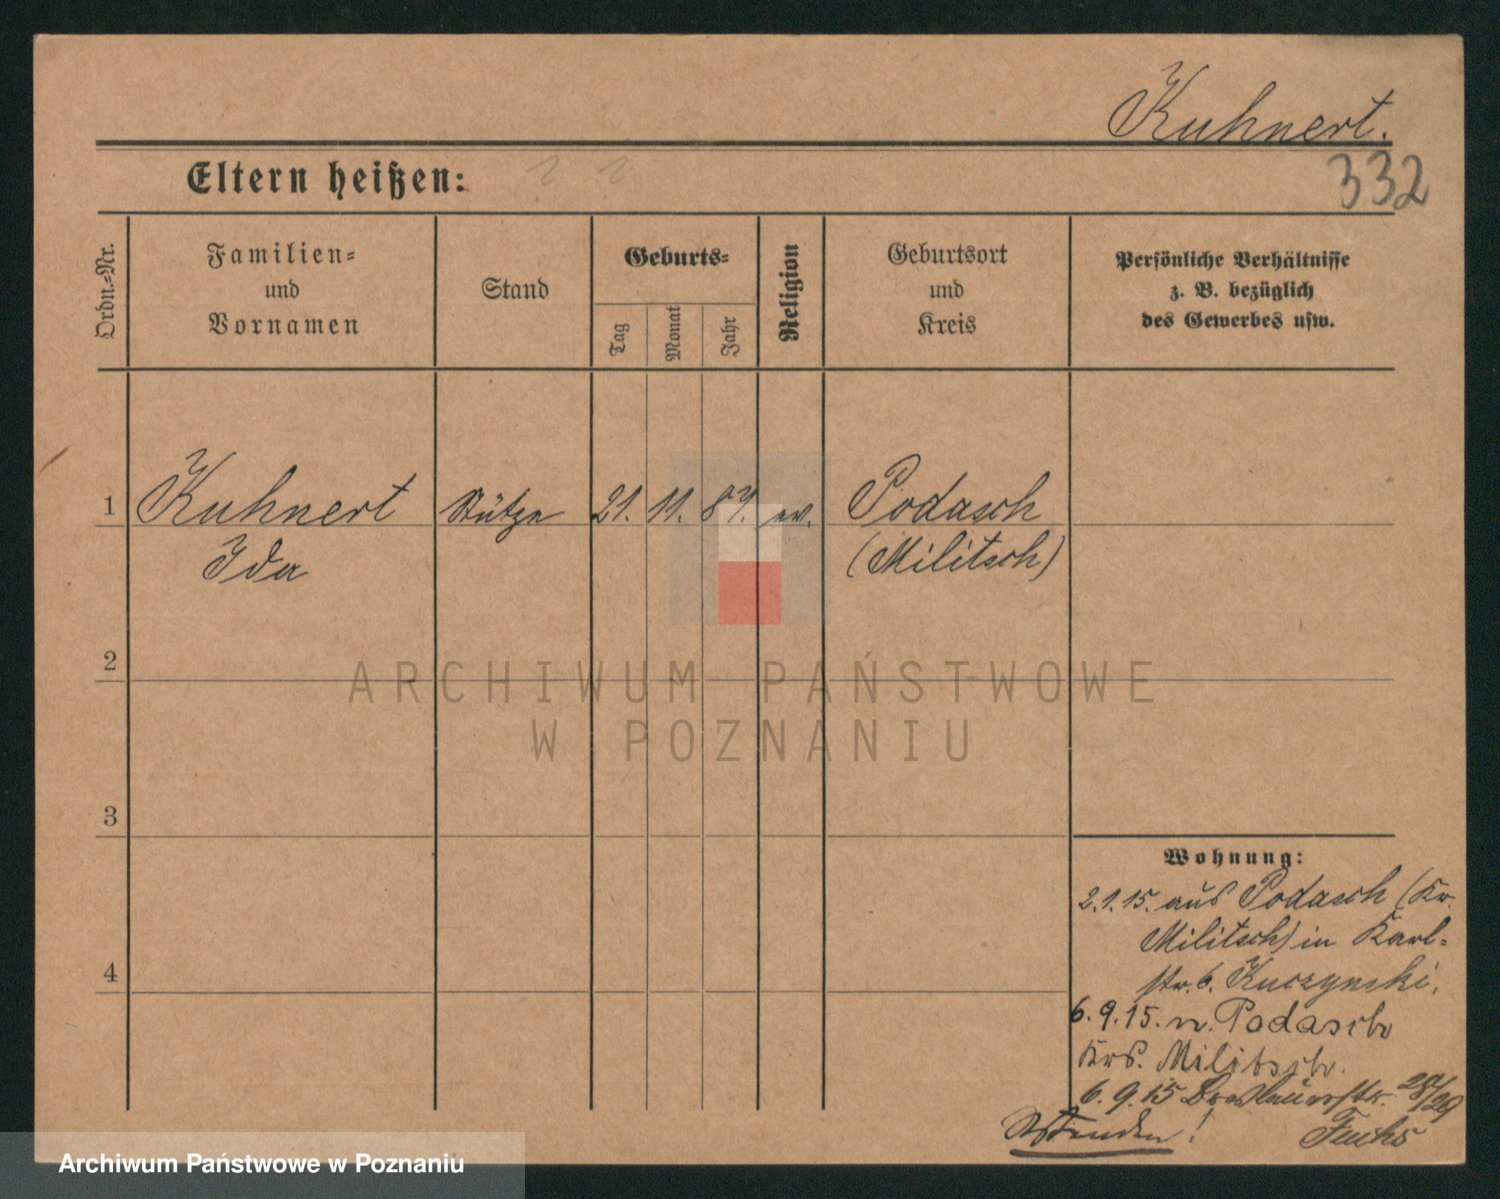 Kuhnert.
Eltern heißen:
332
Ordn.-Nr.
Familien-
und
Vornamen
Stand
Geburts-
Tag
Monat
Jahr
Religion
Geburtsort
und
Kreis
Persönliche Verhältnisse
z. B. bezüglich
des Gewerbes usw.
1 Kuhnert Stütze 21. 11. 87. ev. Podasch
Ida (Militsch)
2
ARCHIWUM PAŃSTWOWE
W POZNANIU
3
Wohnung:
2.1.15. aus Podasch (Kr.
Militsch) in Karl-
str. 6. Kuczynski.
6.9.15. n. Podasch
4
Krs. Militsch.
6.9.15 Breslauerstr. 28/29
Fuchs
Archiwum Państwowe w Poznaniu